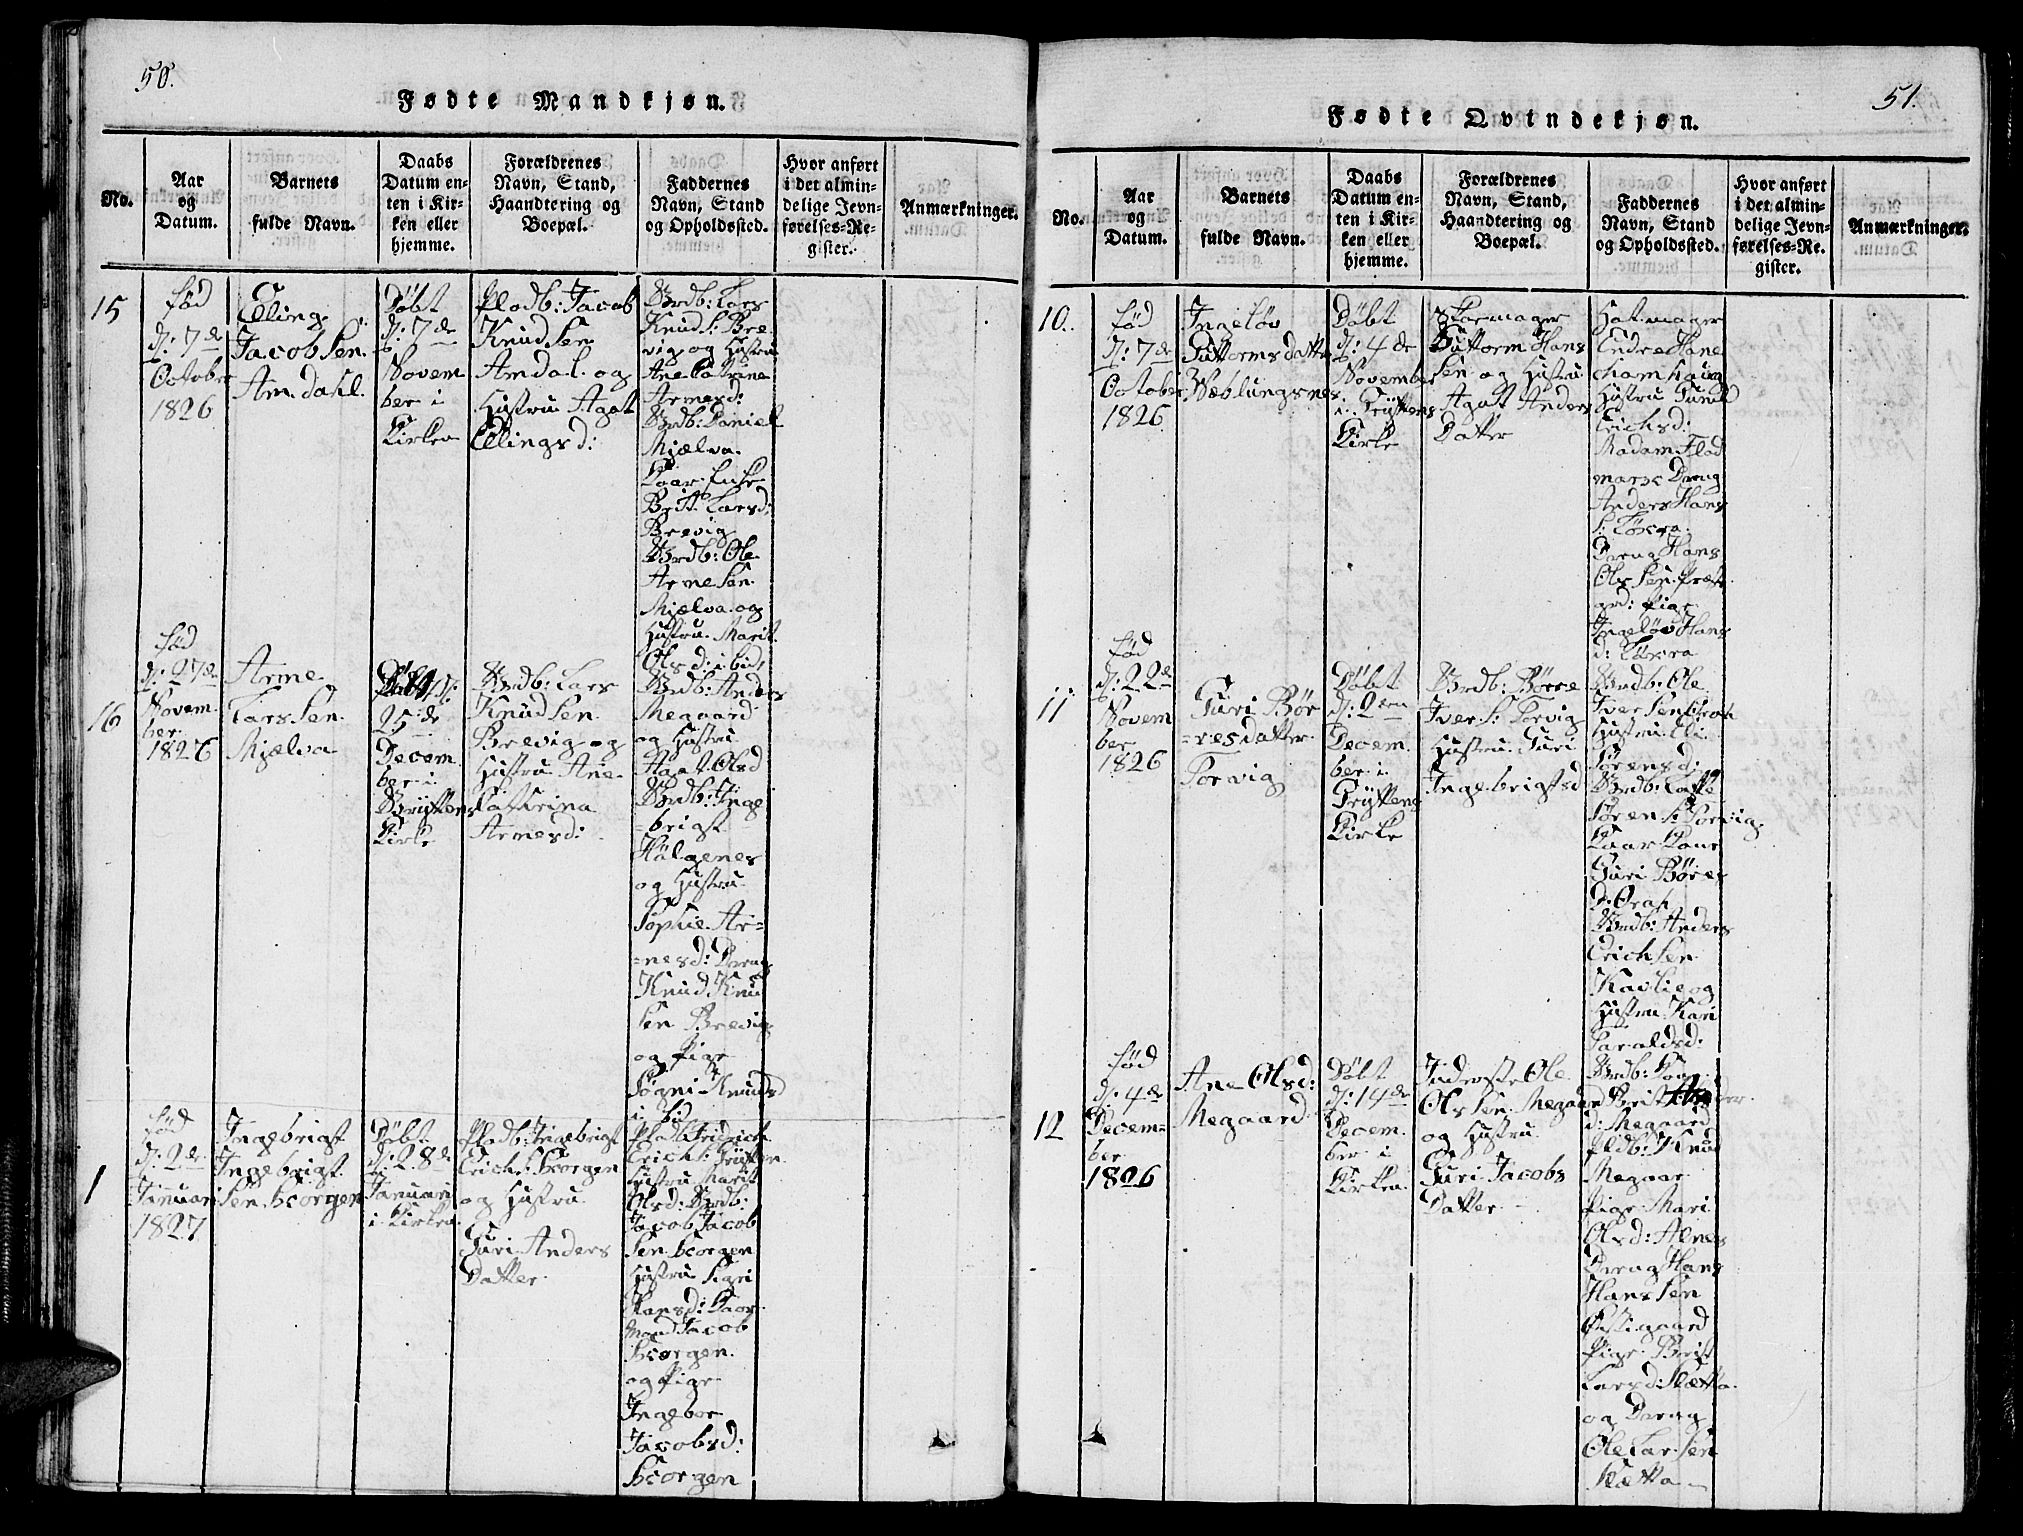 50.
Fødte Mandkjøn.
No.
Aar
og
Datum.
Barnets
fulde Navn.
Daabs
Datum en-
ten i Kir-
ken eller
hjemme.
Forældrenes
Navn, Stand,
Haandtering og
Boepæl.
Faddernes
Navn, Stand
og Opholdssted.
Hvor anført
i det almin-
delige Jevn-
førelses-Re-
gister.
Anmærkninger.
15
fød
d: 7de
October
1826
Elling
Jacobsen
Amdahl.
Døbt
d: 7de
Novem
ber i
Kirken
Pladb: Jacob
Knudsen
Amdal og
Hustru Agat
Ellingsd:
Brdb: Lars
Knuds: Bre
vig og Hustru
Ane Catrine
Arnesd:
Brdb: Daniel
Mjælva.
Britt Larsd:
Brevig
Brdb: Ole
Arnesen
Mjælva og
Hustru Marit
Olsd: ibid,
16
fød
d: 27de
Novem
ber
1826
Arne
Larssen
Mjælva
d:
25de
Decem
ber i
Gryttens
Kirke
Brdb: Lars
Knudsen
Brevig og
Hustru Ane
Cathrina
Arnesd:
Brdb: Anders
Megaard
og Hustru
Agat Olsd
Brdb: Inge
=brigt
og Hustru
Sophie Ar=
=nesd: Dreng
Knud Knu
sen Brevig
og Pige
Søgni Knuds
i bid
1
fød
d: 2de
Januari
1827
Ingebrigt
Ingebrigt
sen Hcorgen
Døbt
d: 28de
Januari
i Kirken
Pladb: Ingebrigt
Erichs: Hcorgen
og Hustru
Guri Anders
Datter
Pladb: Fridrich
Erichs: Grytten
Hustru Marit
Olsd: Brdb:
Jacob Jacob
sen Hcorgen
Hustru Sigri
Hansd: Kaar
mand Jacob
Hcorgen.
og Pige
Ingebor
Jacobsd:
Hcorgen
51.
Fødte Qvindekjøn.
No.
Aar
og
Datum.
Barnets
fulde Navn.
Daabs
Datum en-
ten i Kir-
ken eller
hjemme.
Forældrenes
Navn, Stand,
Haandtering og
Boepæl.
Faddernes
Navn, Stand
og Opholdssted.
Hvor anført
i det almin-
delige Jevn-
førelses-Re-
gister.
Anmærkninger.
10.
fød
d: 7de
October
1826
Ingeløv
Guttormsdatter
Væblungsnes
Døbt
d: 4de
November
i Gryttens
Kirke
Skormager
Guttorm Hans
sen og Hustru
Agat Anders
Datter
Hatmager
Endre Hane
Hustru Gunild
Erichsd:
Madam Flad
mark Dreng
Anders Hans
s: Løkra.
Dreng Hans
Olssen Præst
grd: Pige
Ingeløv Hans
d: Løkra
11
fød
d: 22de
Novem
ber
1826
Guri Bør
=resdatter
Torvig
Døbt
d: 2den
Decem
ber i
Gryttens
Kirke
Brdb: Børre
Ivers: Torvig
Hustru Guri
Ingebrigtsd
Brdb: Ole
Iversen
Hustru Eli
Sørensd:
Brdb:
Sørens: Torvig
Guri Børes
d:
Brdb: Anders
Erichsen
Kavlie og
Hustru Kari
Haraldsd:
12
fød
d: 4de
Decem=
ber
1826
Ane Olsd:
Megaard
Døbt
d: 14de
Decem
ber i
Kirken
Inderste Ole
Olssen Megaard
og Hustru
Guri Jacobs
Datter
Brdb:
Brit
d: Megaard
Pldb: Knud
Megaar
Pige Mari
Olsd: Alnes
Dreng Hans
Hanssen
Østigaard
Pige Brit
Larsd: Sletta.
og Dreng
Ole Larssen
Sletta